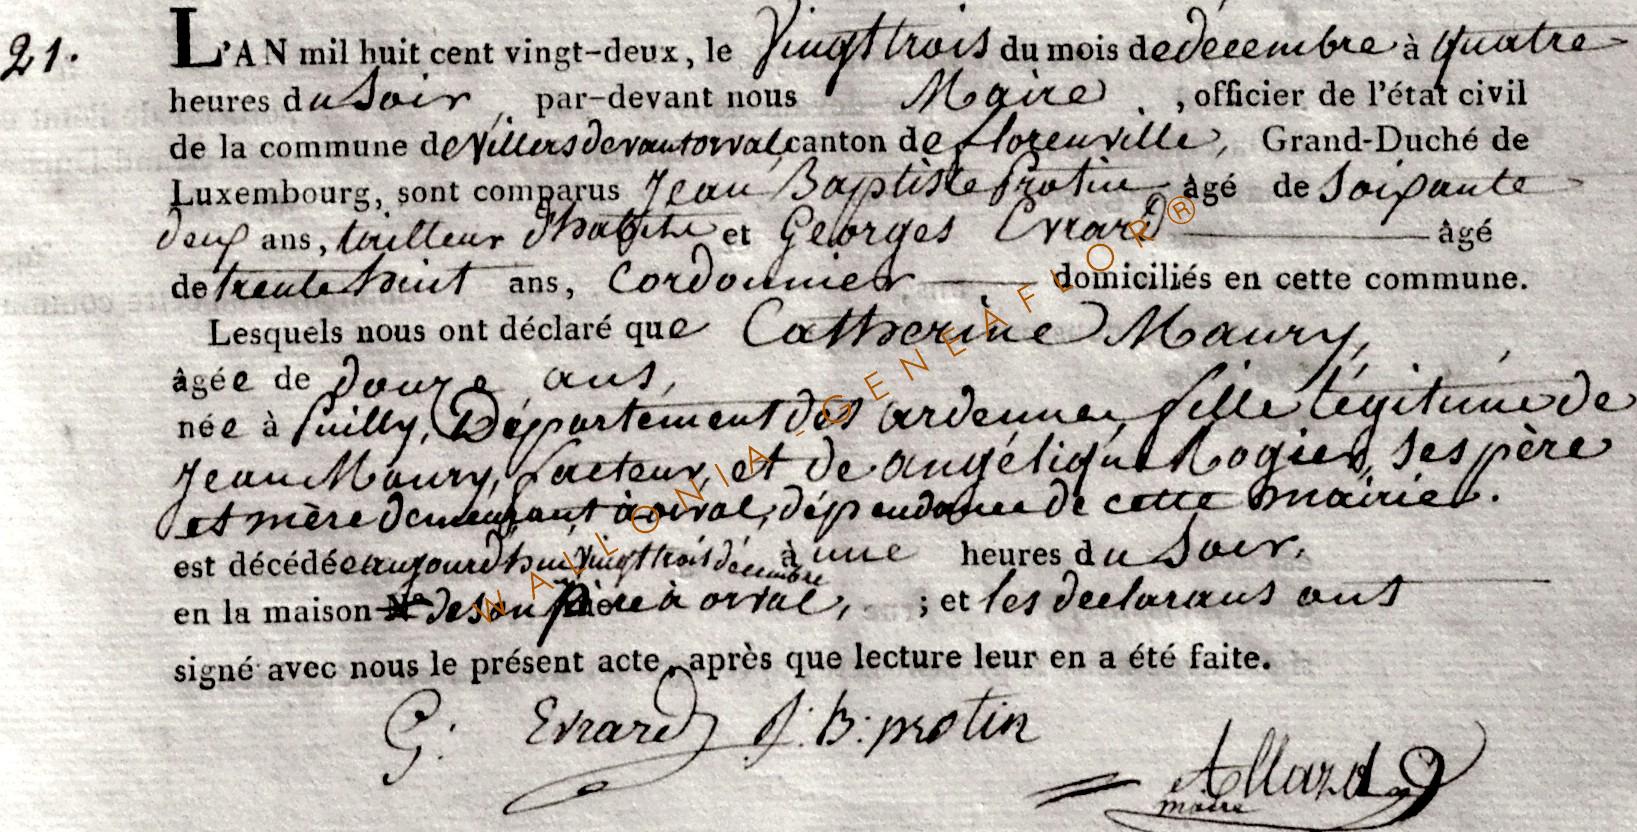 21. L'AN mil huit cent vingt-deux, le Vingttrois du mois de decembre à quatre
heures du Soir, par-devant nous Maire, officier de l'état civil
de la commune de Villersdevantorval, canton de florenville, Grand-Duché de
Luxembourg, sont comparus Jean Baptiste Protin âgé de Soixante
deux ans, tailleur d'habits et Georges Evrard âgé
de trente huit ans, Cordonnier domiciliés en cette commune.
Lesquels nous ont déclaré que Catherine Maury,
âgée de douze ans,
née à Puilly, Département des ardennes, fille légitime de
Jean Maury, facteur, et de angélique Rogier, ses père
et mère demeurant à orval, dépendance de cette mairie.
est décédée aujourdhui Vingttrois décembre à une heures du Soir,
en la maison N.° de son père à orval, ; et les declarans ont
signé avec nous le présent acte, après que lecture leur en a été faite.
G: Evrard J: B: protin
Allard
maire
WALLONIA-GENEAFLOR®